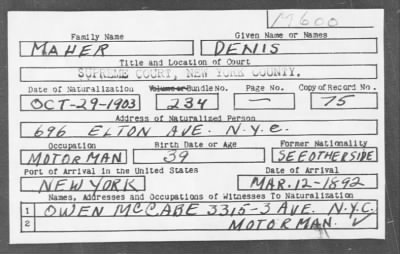 17600
Family Name Given Name or Names
MAHER DENIS
Title and Location of Court
SUPREME COURT, NEW YORK COUNTY.
Date of Naturalization Volume or Bundle No. Page No. Copy of Record No.
OCT-29-1903 234 — 75
Address of Naturalized Person
696 ELTON AVE. N.Y.C.
Occupation Birth Date or Age Former Nationality
MOTORMAN 39 SEE OTHERSIDE
Port of Arrival in the United States Date of Arrival
NEW YORK MAR. 12-1892
Names, Addresses and Occupations of Witnesses To Naturalization
1 OWEN MCCABE 3315-3 AVE. N.Y.C.
2 MOTORMAN. ✓